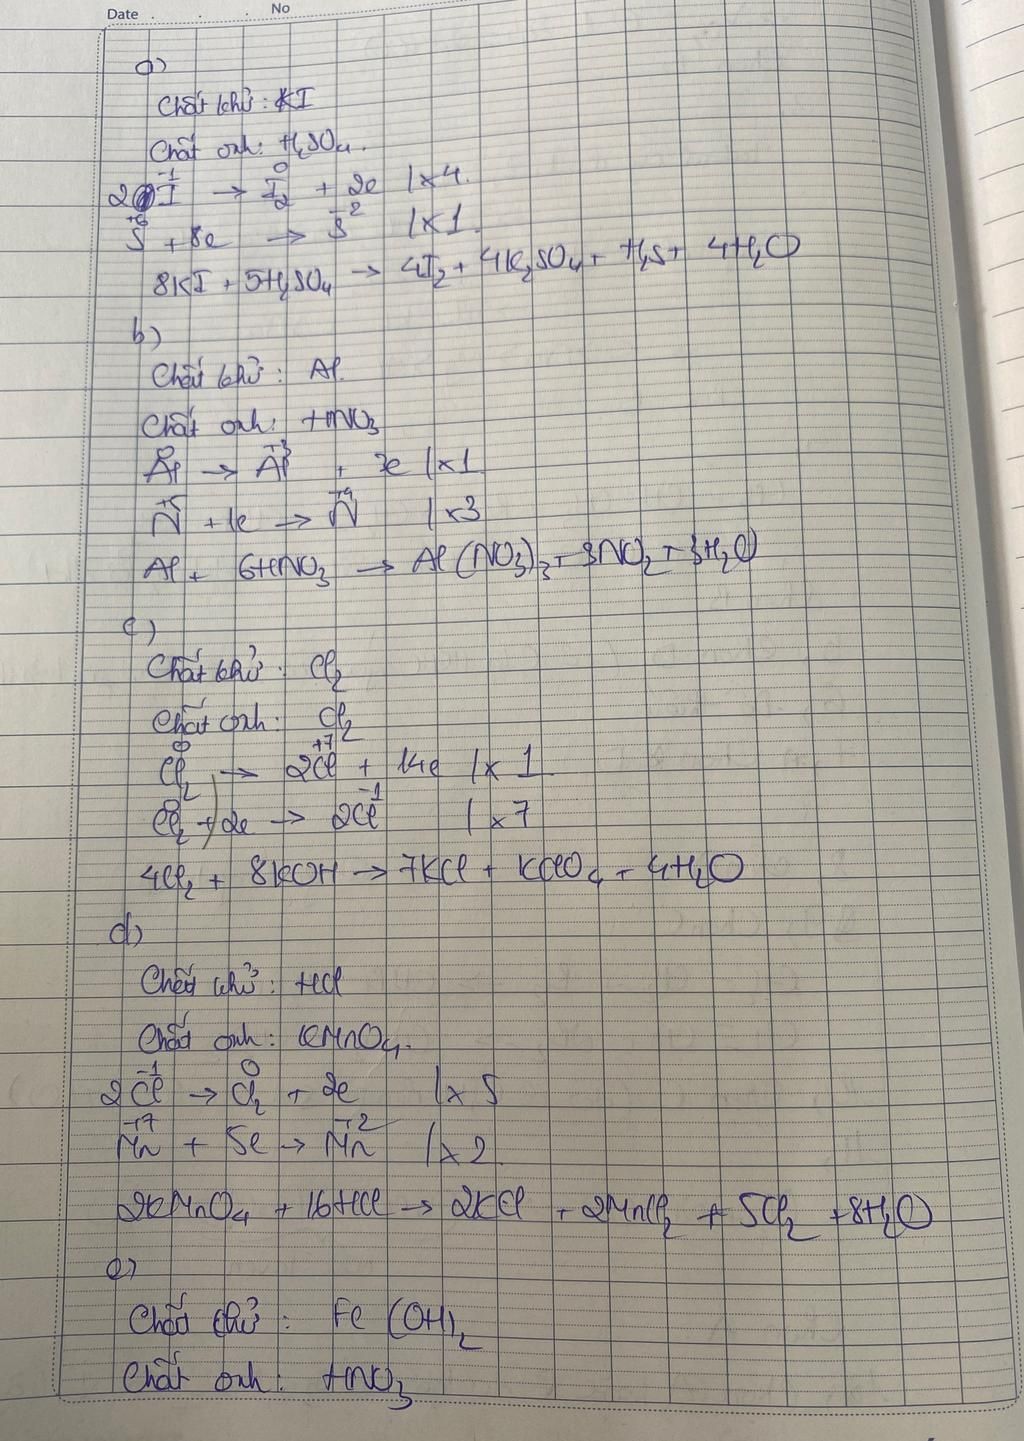 Date . . .
No
a)
Chất khử: KI
Chất oxh: H₂SO₄.
2I⁻¹ → I₂⁰ + 2e | x 4.
S⁺⁶ + 8e → S⁻² | x 1.
8KI + 5H₂SO₄ → 4I₂ + 4K₂SO₄ + H₂S + 4H₂O
b)
Chất khử: Al.
Chất oxh: HNO₃
Al⁰ → Al⁺³ + 3e | x 1
N⁺⁵ + 1e → N⁺⁴ | x 3
Al + 6HNO₃ → Al(NO₃)₃ + 3NO₂ + 3H₂O
c)
Chất khử: Cl₂
Chất oxh: Cl₂
Cl₂⁰ → 2Cl⁺⁷ + 14e | x 1
Cl₂⁰ + 2e → 2Cl⁻¹ | x 7
4Cl₂ + 8KOH → 7KCl + KClO₄ + 4H₂O
d)
Chất khử: HCl
Chất oxh: KMnO₄.
2Cl⁻¹ → Cl₂⁰ + 2e | x 5
Mn⁺⁷ + 5e → Mn⁺² | x 2
2KMnO₄ + 16HCl → 2KCl + 2MnCl₂ + 5Cl₂ + 8H₂O
e)
Chất khử: Fe(OH)₂
Chất oxh: HNO₃